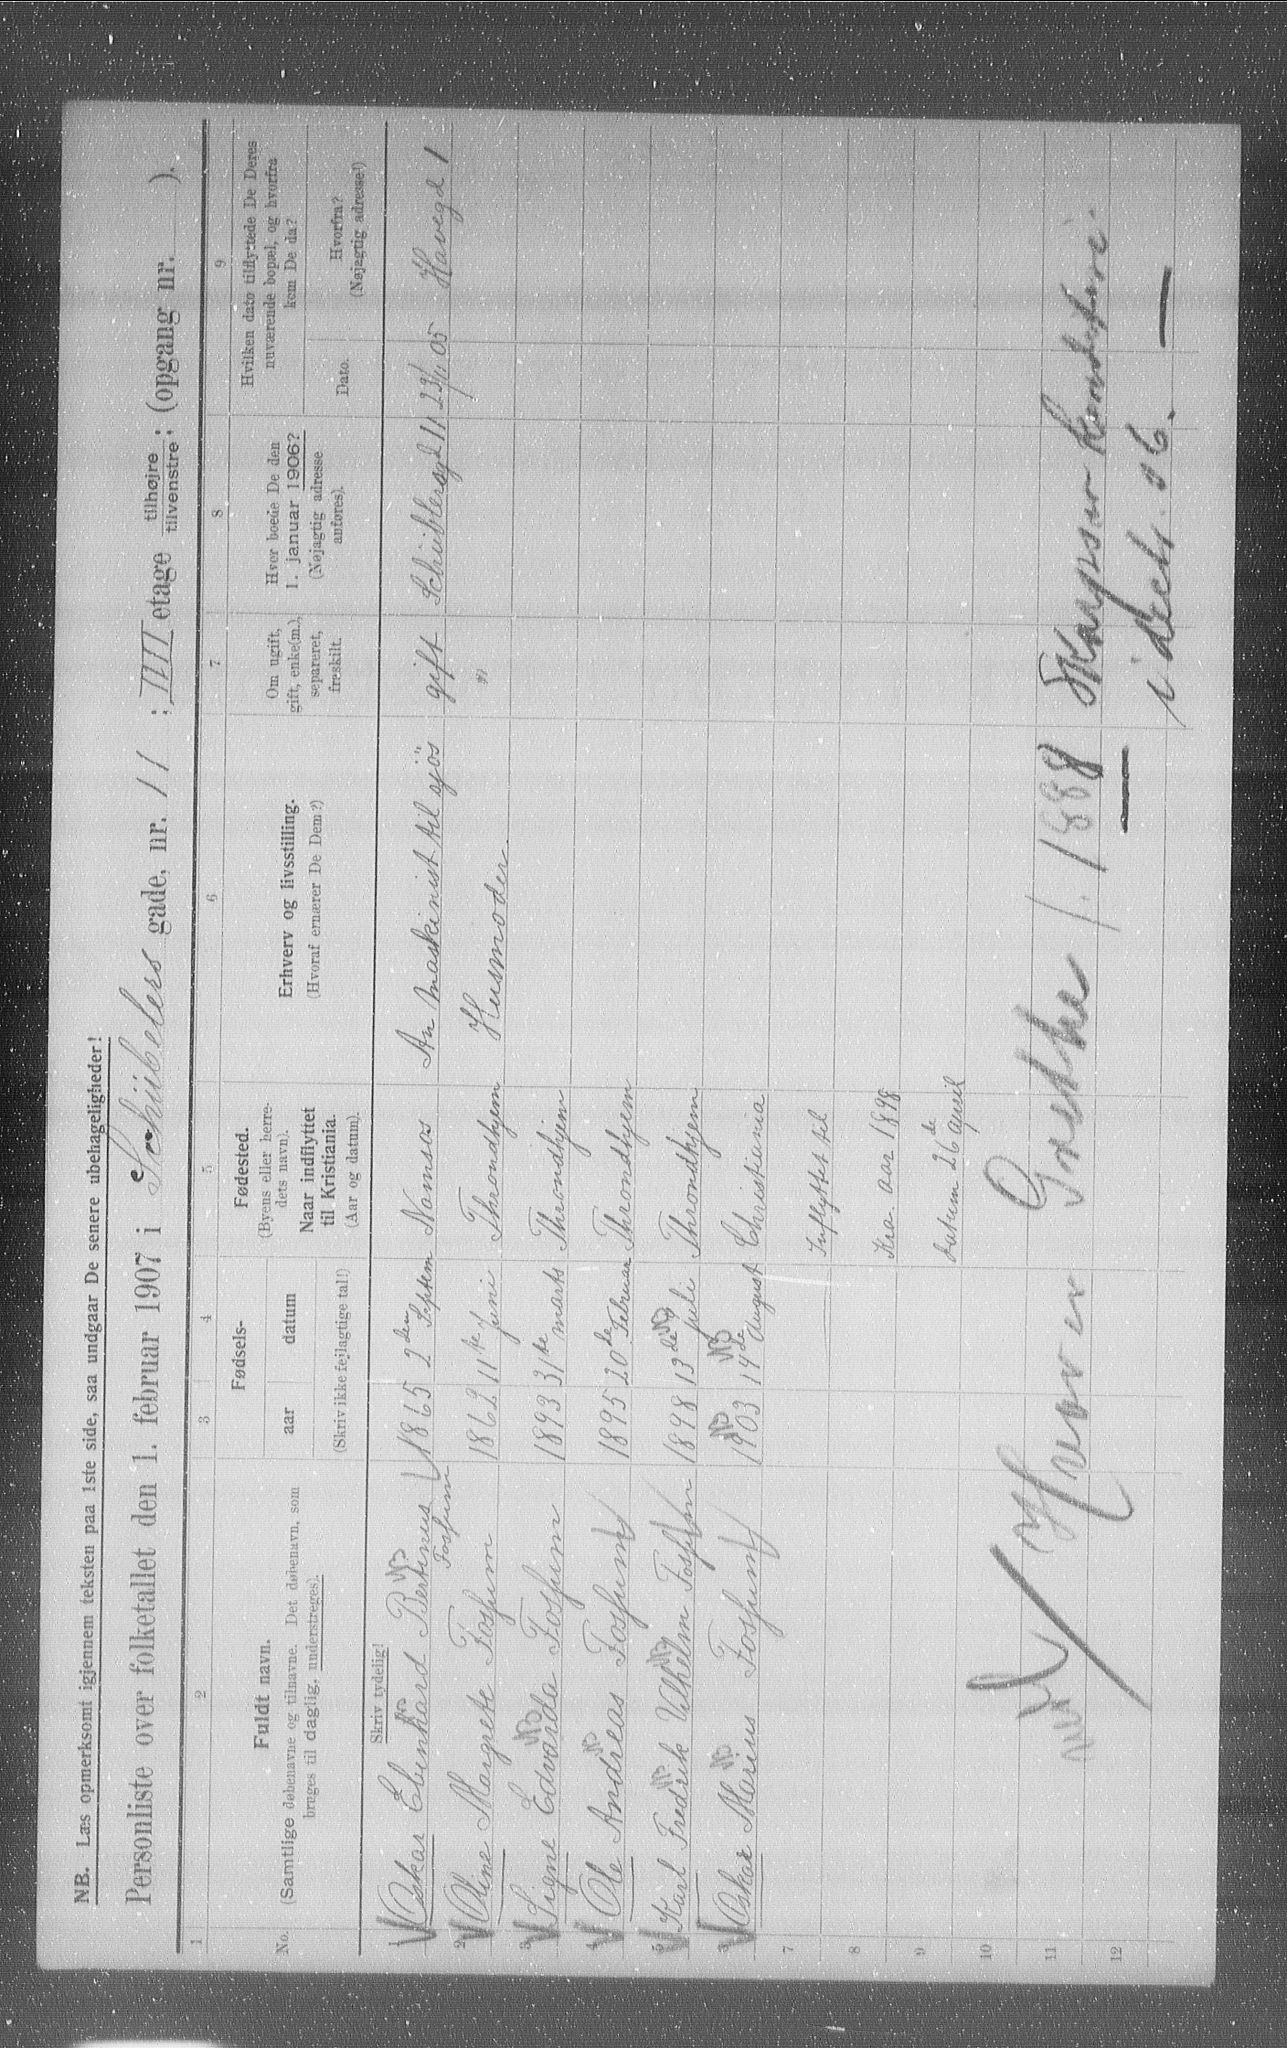 NB. Læs opmerksomt igjennem teksten paa 1ste side, saa undgaar De senere ubehageligheder!
Personliste over folketallet den 1. februar 1907 i Schübelers gade, nr. 11 ; IIII etage tilhøjre tilvenstre; (opgang nr. ).
1 2 3 4 5 6 7 8 9
No. Fuldt navn. (Samtlige døbenavne og tilnavne. Det døbenavn, som bruges til daglig, understreges).
Fødsels-
aar datum
(Skriv ikke fejlagtige tal!)
Fødested.
(Byens eller herredets navn).
Naar indflyttet til Kristiania.
(Aar og datum).
Erhverv og livsstilling.
(Hvoraf ernærer De Dem?)
Om ugift, gift, enke(m.), separeret, fraskilt.
Hvor boede De den 1. januar 1906?
(Nøjagtig adresse anføres).
Hvilken dato tilflyttede De Deres nuværende bopæl, og hvorfra kom De da?
Dato. Hvorfra?
(Nøjagtig adresse!)
Skriv tydelig!
1 Oskar Ebenhard Bertinus Fossum 1865 2 den Septem Namsos An maskinist til sjös gift Schüblersgd 11 23/11 05 Havegd 1
2 Oline Margrete Fossum 1862 11te juni Throndhjem Husmoder. "
3 Signe Edvarda Fossum 1893 31te marts Throndhjem
4 Ole Andreas Fossum 1895 20de Februar Throndhjem
5 Karl Fredrik Vilhelm Fossum 1898 13de juli Throndhjem
6 Oskar Marius Fossum 1903 14de August Christiania
7 Inflyttet til
8 Kra. aar 1898
9 datum 26de april
10
11 Hvor er Grethe /. 1888
12 i decb. 06.